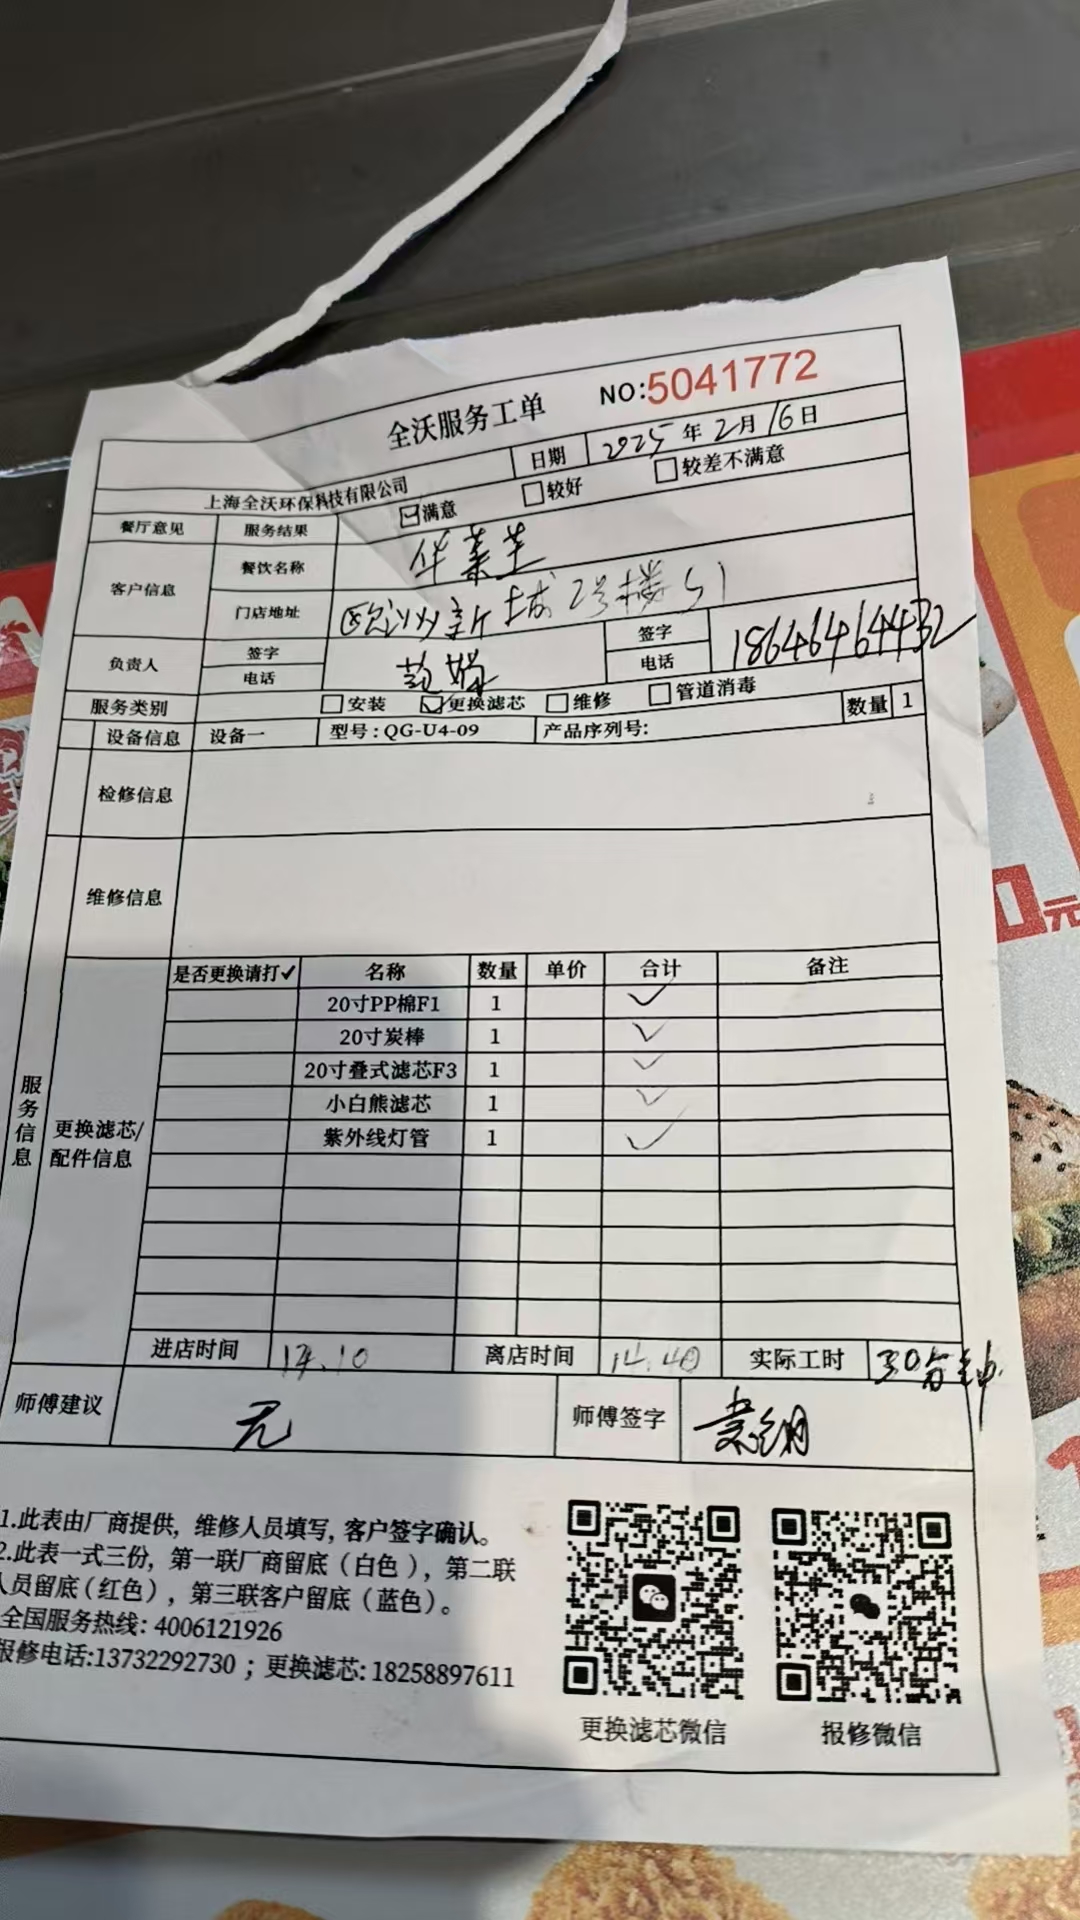 全沃服务工单
NO:5041772
上海全沃环保科技有限公司
日期 2025年2月16日
餐厅意见 服务结果 满意 较好 较差不满意
客户信息 餐饮名称 华莱士
门店地址 欧洲新城2号楼S1
负责人 签字 电话 签字 电话 18646464432
服务类别 安装 更换滤芯 维修 管道消毒
设备信息 设备一 型号:QG-U4-09 产品序列号: 数量 1
检修信息
维修信息
服务信息
更换滤芯/配件信息
是否更换请打✓ 名称 数量 单价 合计 备注
20寸PP棉F1 1 ✓
20寸炭棒 1 ✓
20寸叠式滤芯F3 1 ✓
小白熊滤芯 1 ✓
紫外线灯管 1 ✓
进店时间 14.10 离店时间 14.40 实际工时 30分钟
师傅建议 无 师傅签字
1.此表由厂商提供, 维修人员填写, 客户签字确认。
2.此表一式三份, 第一联厂商留底(白色), 第二联
人员留底(红色), 第三联客户留底(蓝色)。
全国服务热线: 4006121926
报修电话:13732292730 ; 更换滤芯: 18258897611
更换滤芯微信 报修微信
0元